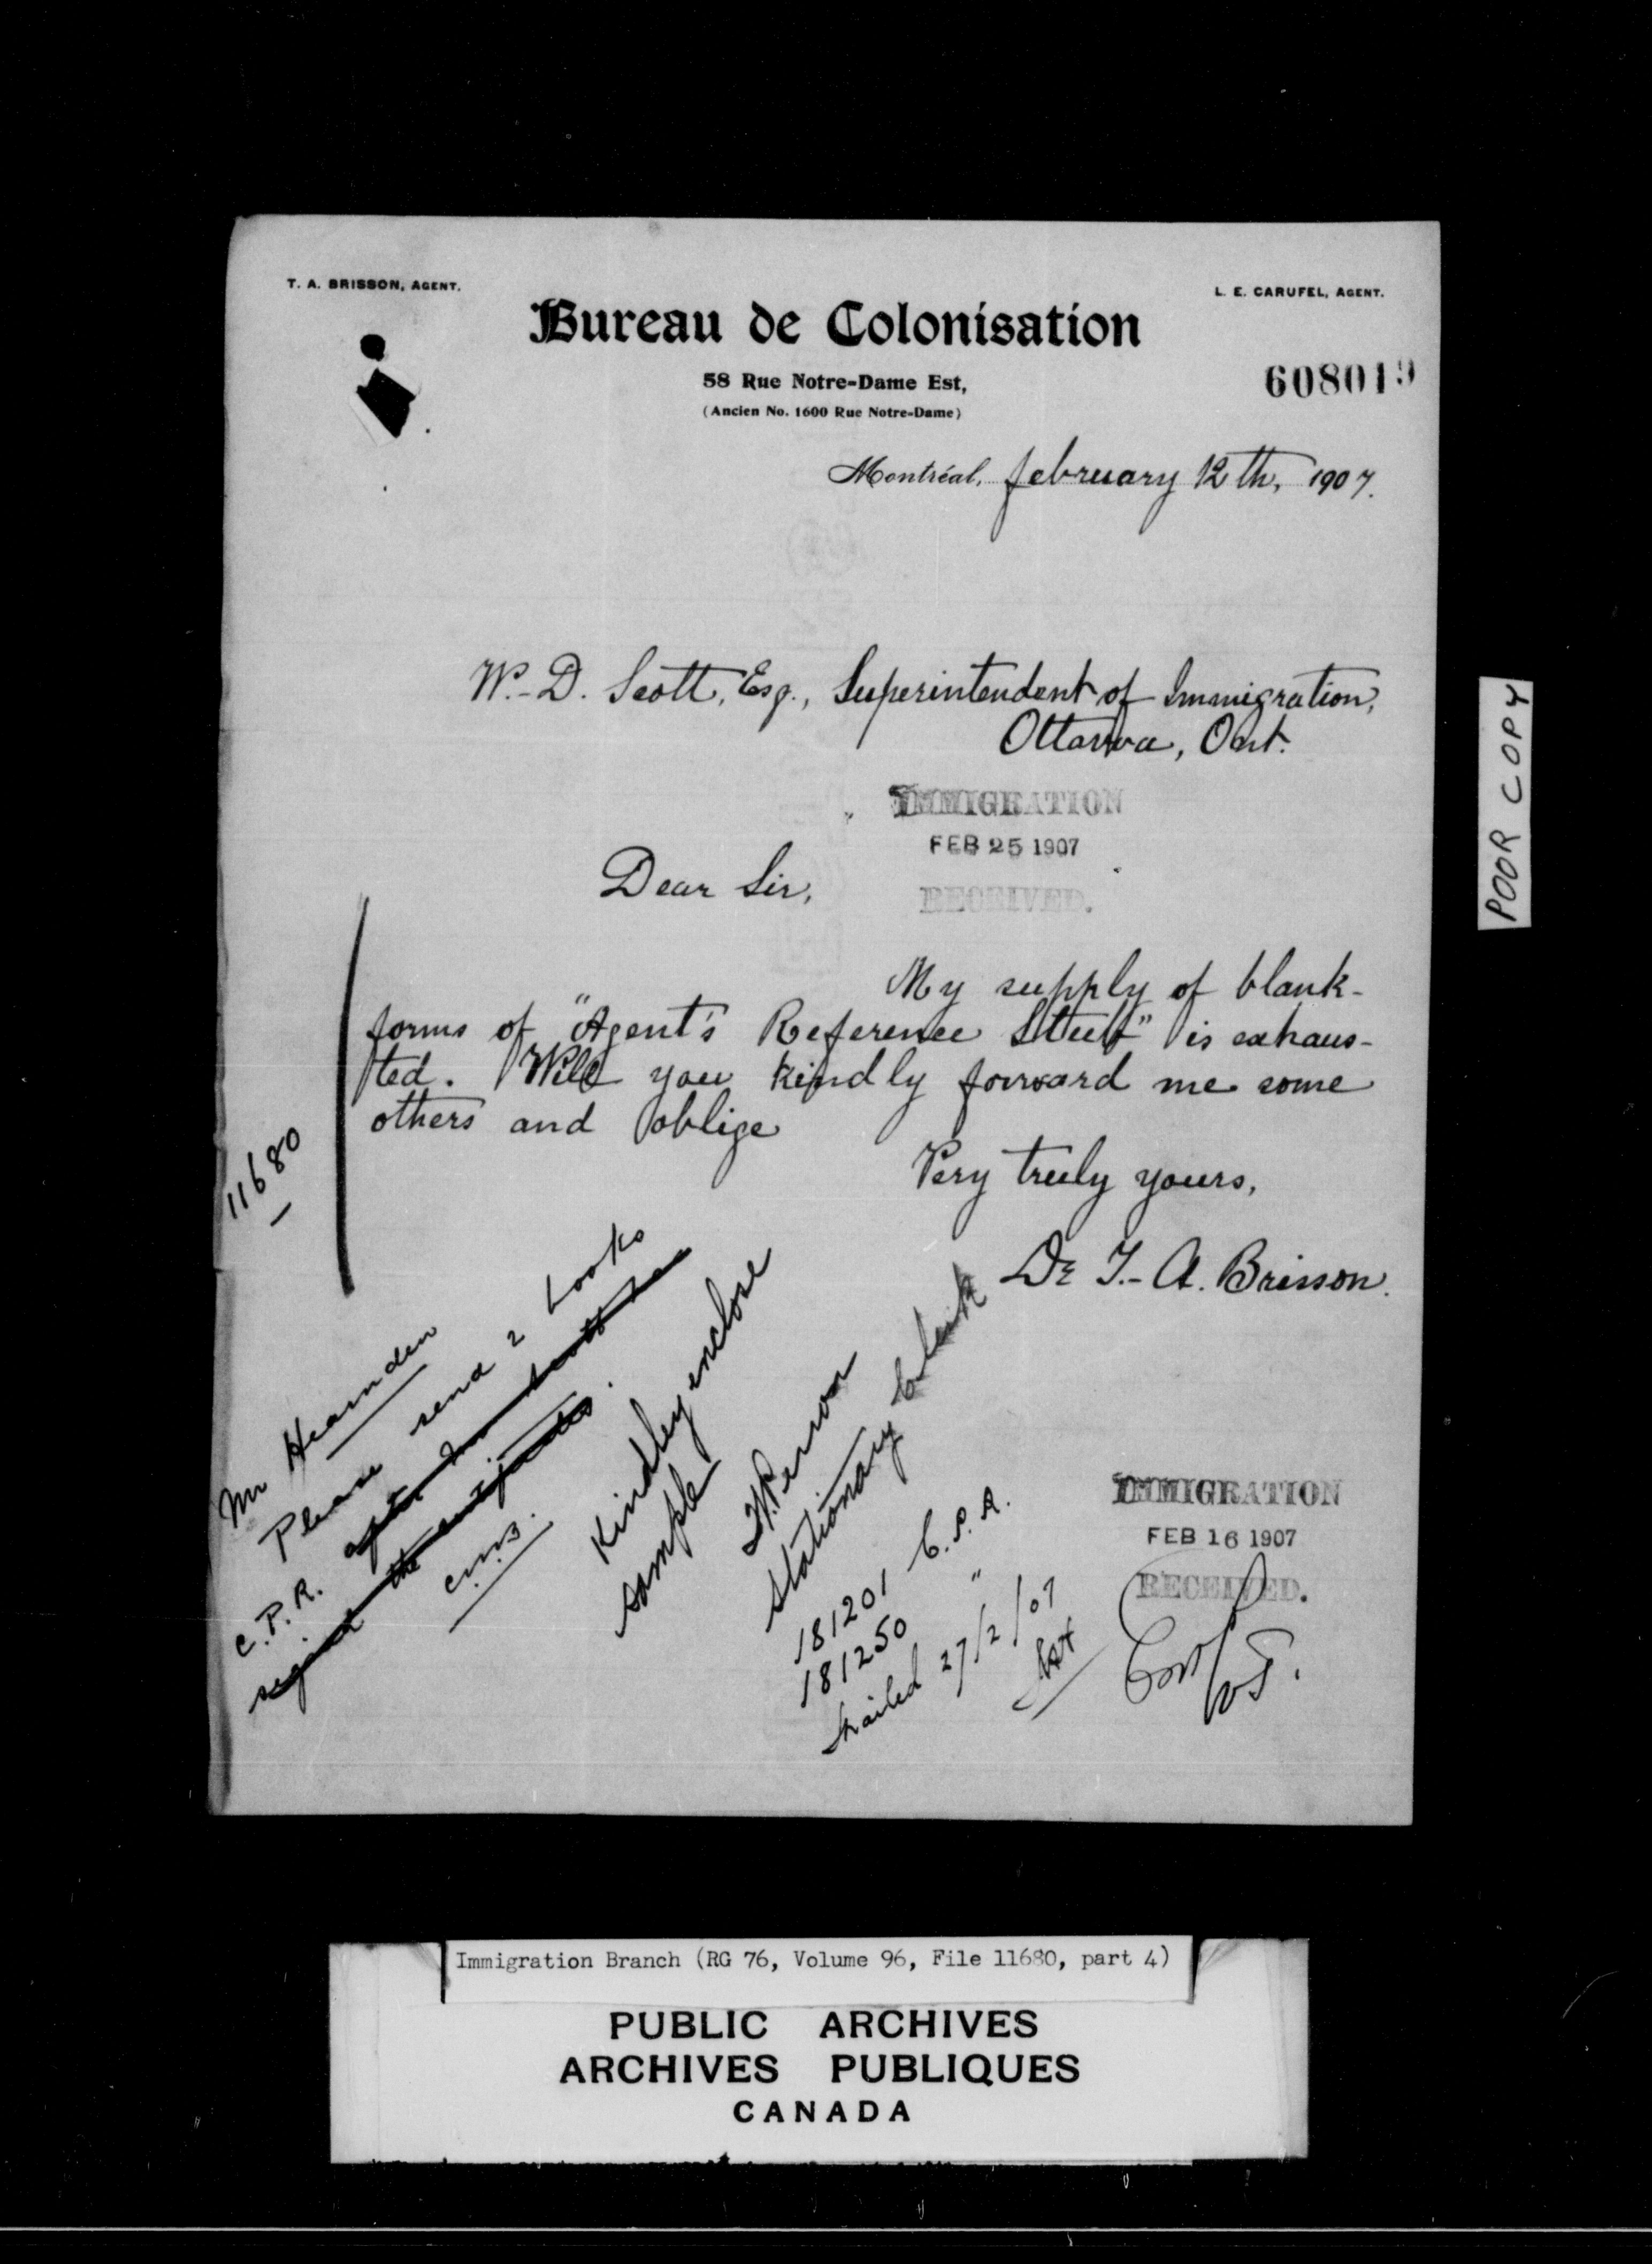 T. A. BRISSON, AGENT.
L. E. CARUFEL, AGENT.
Bureau de Colonisation
58 Rue Notre-Dame Est,
(Ancien No. 1600 Rue Notre-Dame)
608019
Montréal, february 12th, 1907.
W.-D. Scott, Esq., Superintendent of Immigration,
Ottawa, Ont.
IMMIGRATION
FEB 25 1907
RECEIVED.
Dear Sir,
My supply of blank-
forms of "Agent's Reference" is exhaus-
ted. Will you kindly forward me some
others and oblige
Very truly yours,
Dr T.-A. Brisson.
11680
Mr Hearnden
Please send 2 books
C.P.R.
the
Kindly enclose
sample
Stationary Clerk
181201 C.P.R.
181250 "
Mailed 27/2/07
IMMIGRATION
FEB 16 1907
RECEIVED.
POOR COPY
Immigration Branch (RG 76, Volume 96, File 11680, part 4)
PUBLIC ARCHIVES
ARCHIVES PUBLIQUES
CANADA